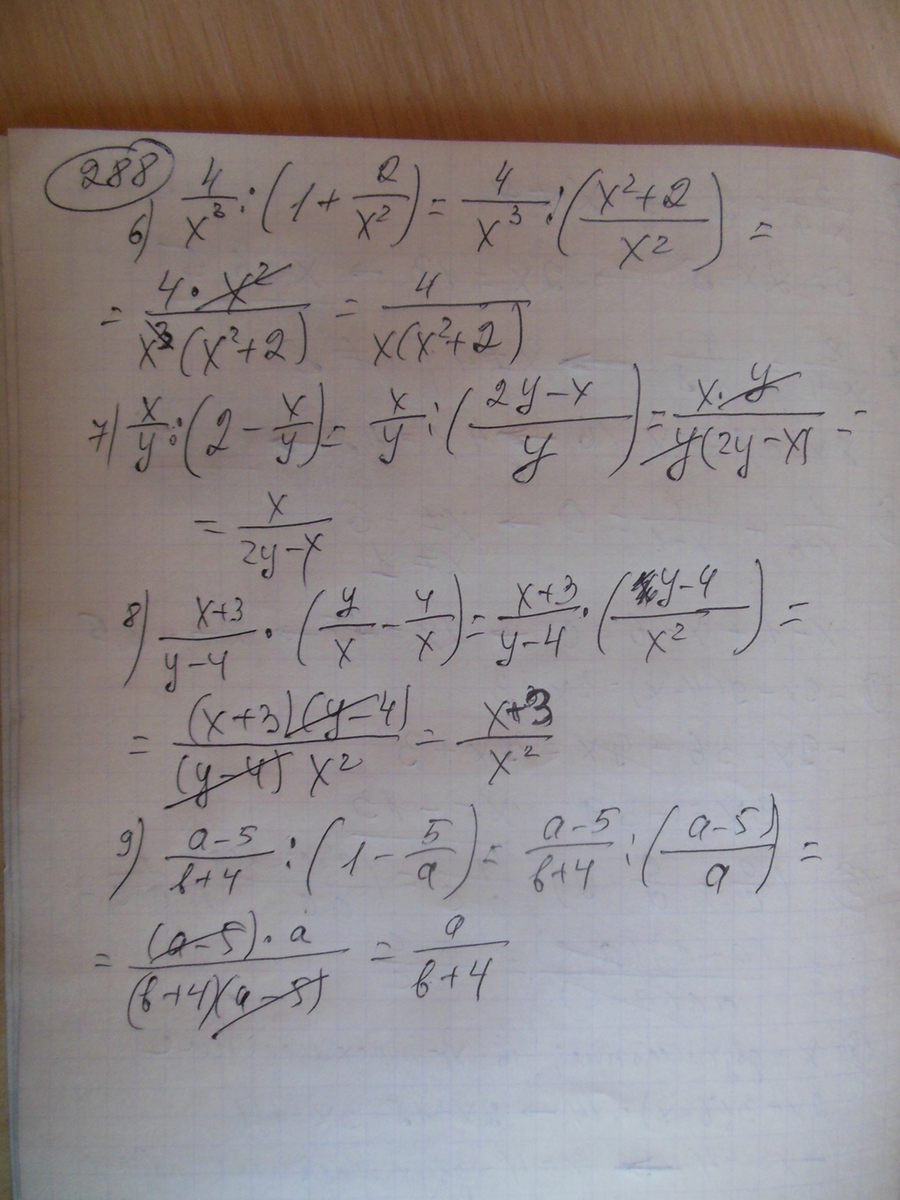 288
6) 4/x³ : (1 + 2/x²) = 4/x³ : ((x²+2)/x²) =
= (4 · x²)/(x³(x²+2)) = 4/(x(x²+2))
7) x/y : (2 − x/y) = x/y : ((2y−x)/y) = (x · y)/(y(2y−x)) =
= x/(2y−x)
8) (x+3)/(y−4) · (y/x − 4/x) = (x+3)/(y−4) · ((y−4)/x²) =
= ((x+3)(y−4))/((y−4) x²) = (x+3)/x²
9) (a−5)/(b+4) : (1 − 5/a) = (a−5)/(b+4) : ((a−5)/a) =
= ((a−5) · a)/((b+4)(a−5)) = a/(b+4)